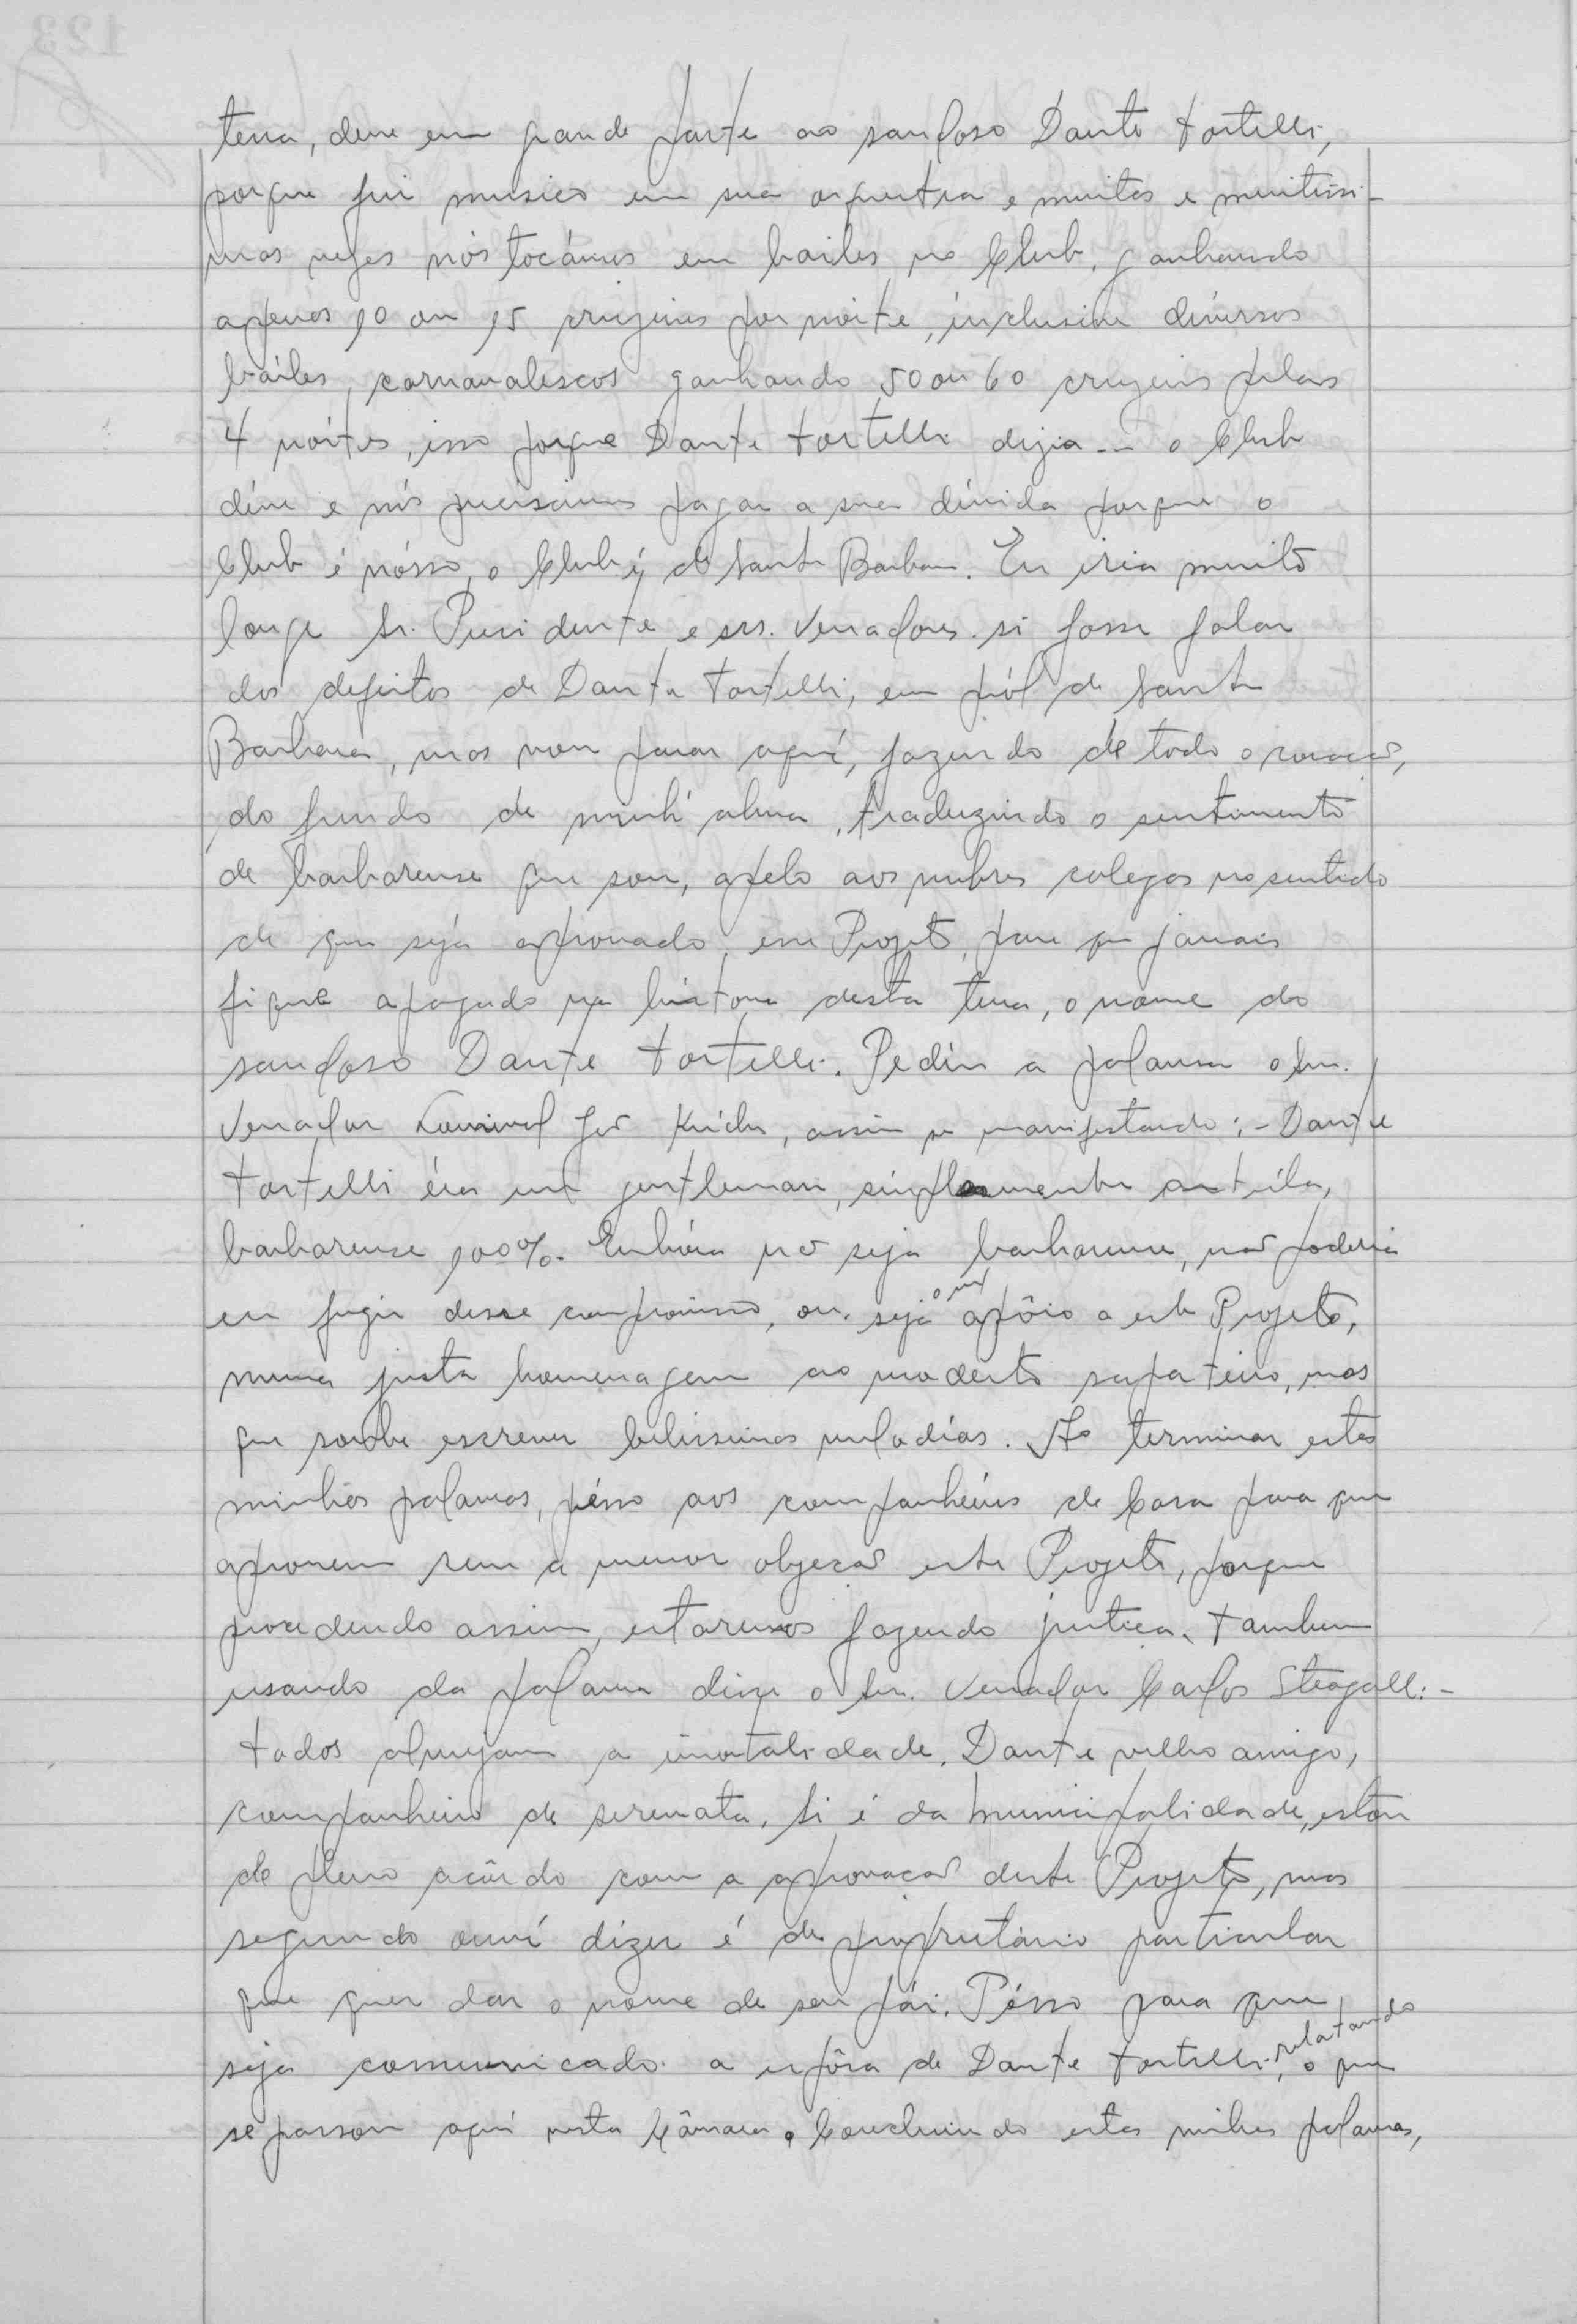 terra, deve em grande parte ao saudoso Dante Tortelli,
porque fui musico em sua orquestra e muitas e muitissi-
mas vezes nós tocámos em bailes no Club, ganhando
apenas 10 ou 15 cruzeiros por noite, inclusive diversos
báiles carnavalescos ganhando 50 ou 60 cruzeiros pelas
4 noites, isso porque Dante Tortelli dizia -- o Club
déve e nós precisamos pagar a sua dívida porque o
Club é nósso, o Club é de Santa Barbara. Eu iria muito
longe Sr. Presidente e srs. Vereadores si fosse falar
dos defeitos de Dante Tortelli, em pról de Santa
Barbara, mas vou parar aquí, fazendo de todo o coração,
do fundo de minh'alma, traduzindo o sentimento
de barbarense que sou, apelo aos nobres colegas no sentido
de que seja aprovado esse Projeto, para que jamais
fique apagado na historia desta terra, o nome do
saudoso Dante Tortelli. Pediu a palavra o Snr.
Vereador Lourival assim se manifestando:- Dante
Tortelli éra um gentleman, simplesmente
barbarense 100%. Embóra não seja barbarense, não poderia
eu fugir desse compromisso, ou seja o meu apôio a este Projeto,
numa justa homenagem ao modesto sapateiro, mas
que soube escrever belissimas melodías. Ao terminar estas
minhas palavras, pésso aos companheiros de Casa para que
aprovem sem a menor objeção este Projeto, porque
procedendo assim, estaremos fazendo justiça. Tambem
usando da palavra disse o Snr. Vereador Carlos Steagall:-
todos almejam a imortalidade. Dante velho amigo,
companheiro de serenata. Si é da Municipalidade, estou
de pleno acôrdo com a aprovação deste Projeto, mas
segundo ouví dizer é de proprietário particular
que quer dar o nome de seu pái. Pésso para que
seja comunicado a espôsa de Dante Tortelli, relatando o que
se passou aqui nesta Câmara. Concluindo estas minhas palavras,